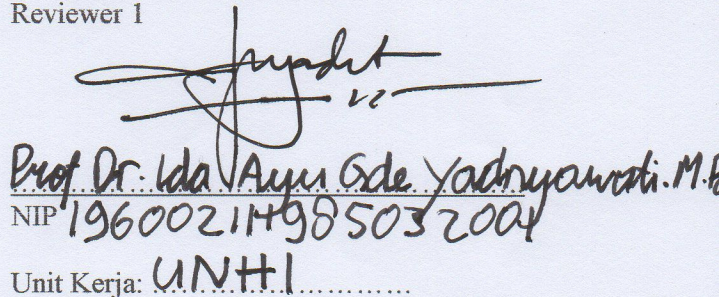 Reviewer 1
Prof Dr. Ida Ayu Gde Yadnyawati. M.P
NIP 196002111985032001
Unit Kerja: UNHI